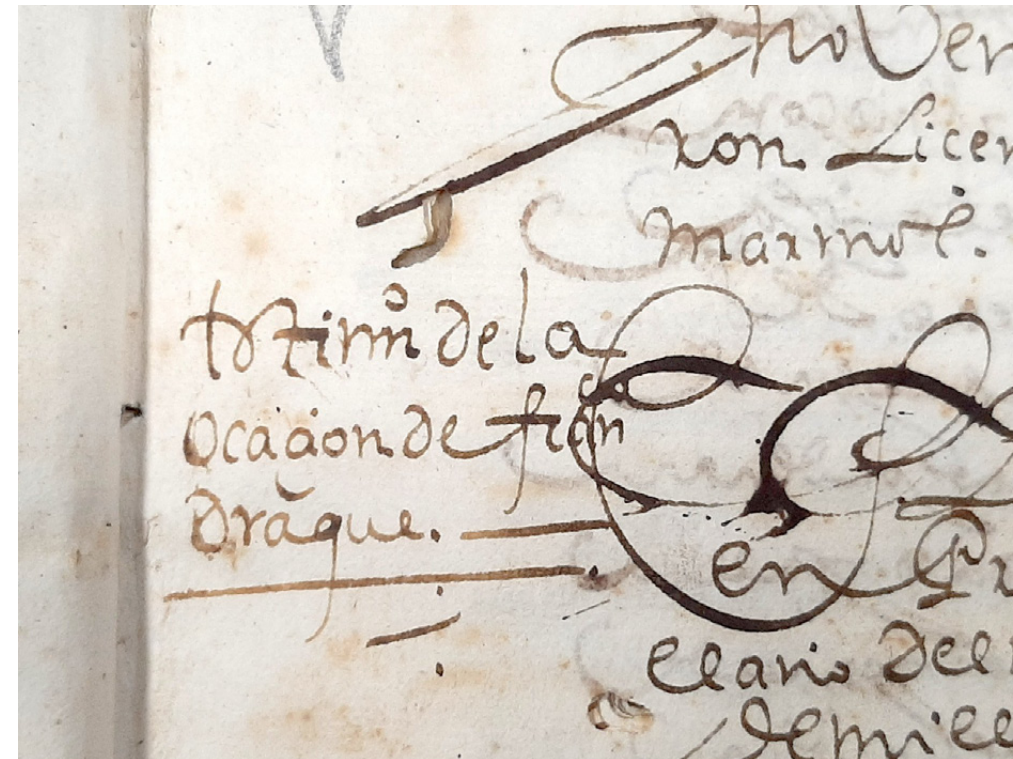 no Ver
ron Licen
Marmol.
testimº de la
ocacion de fran^co
Draque.
en
el año del
de mill